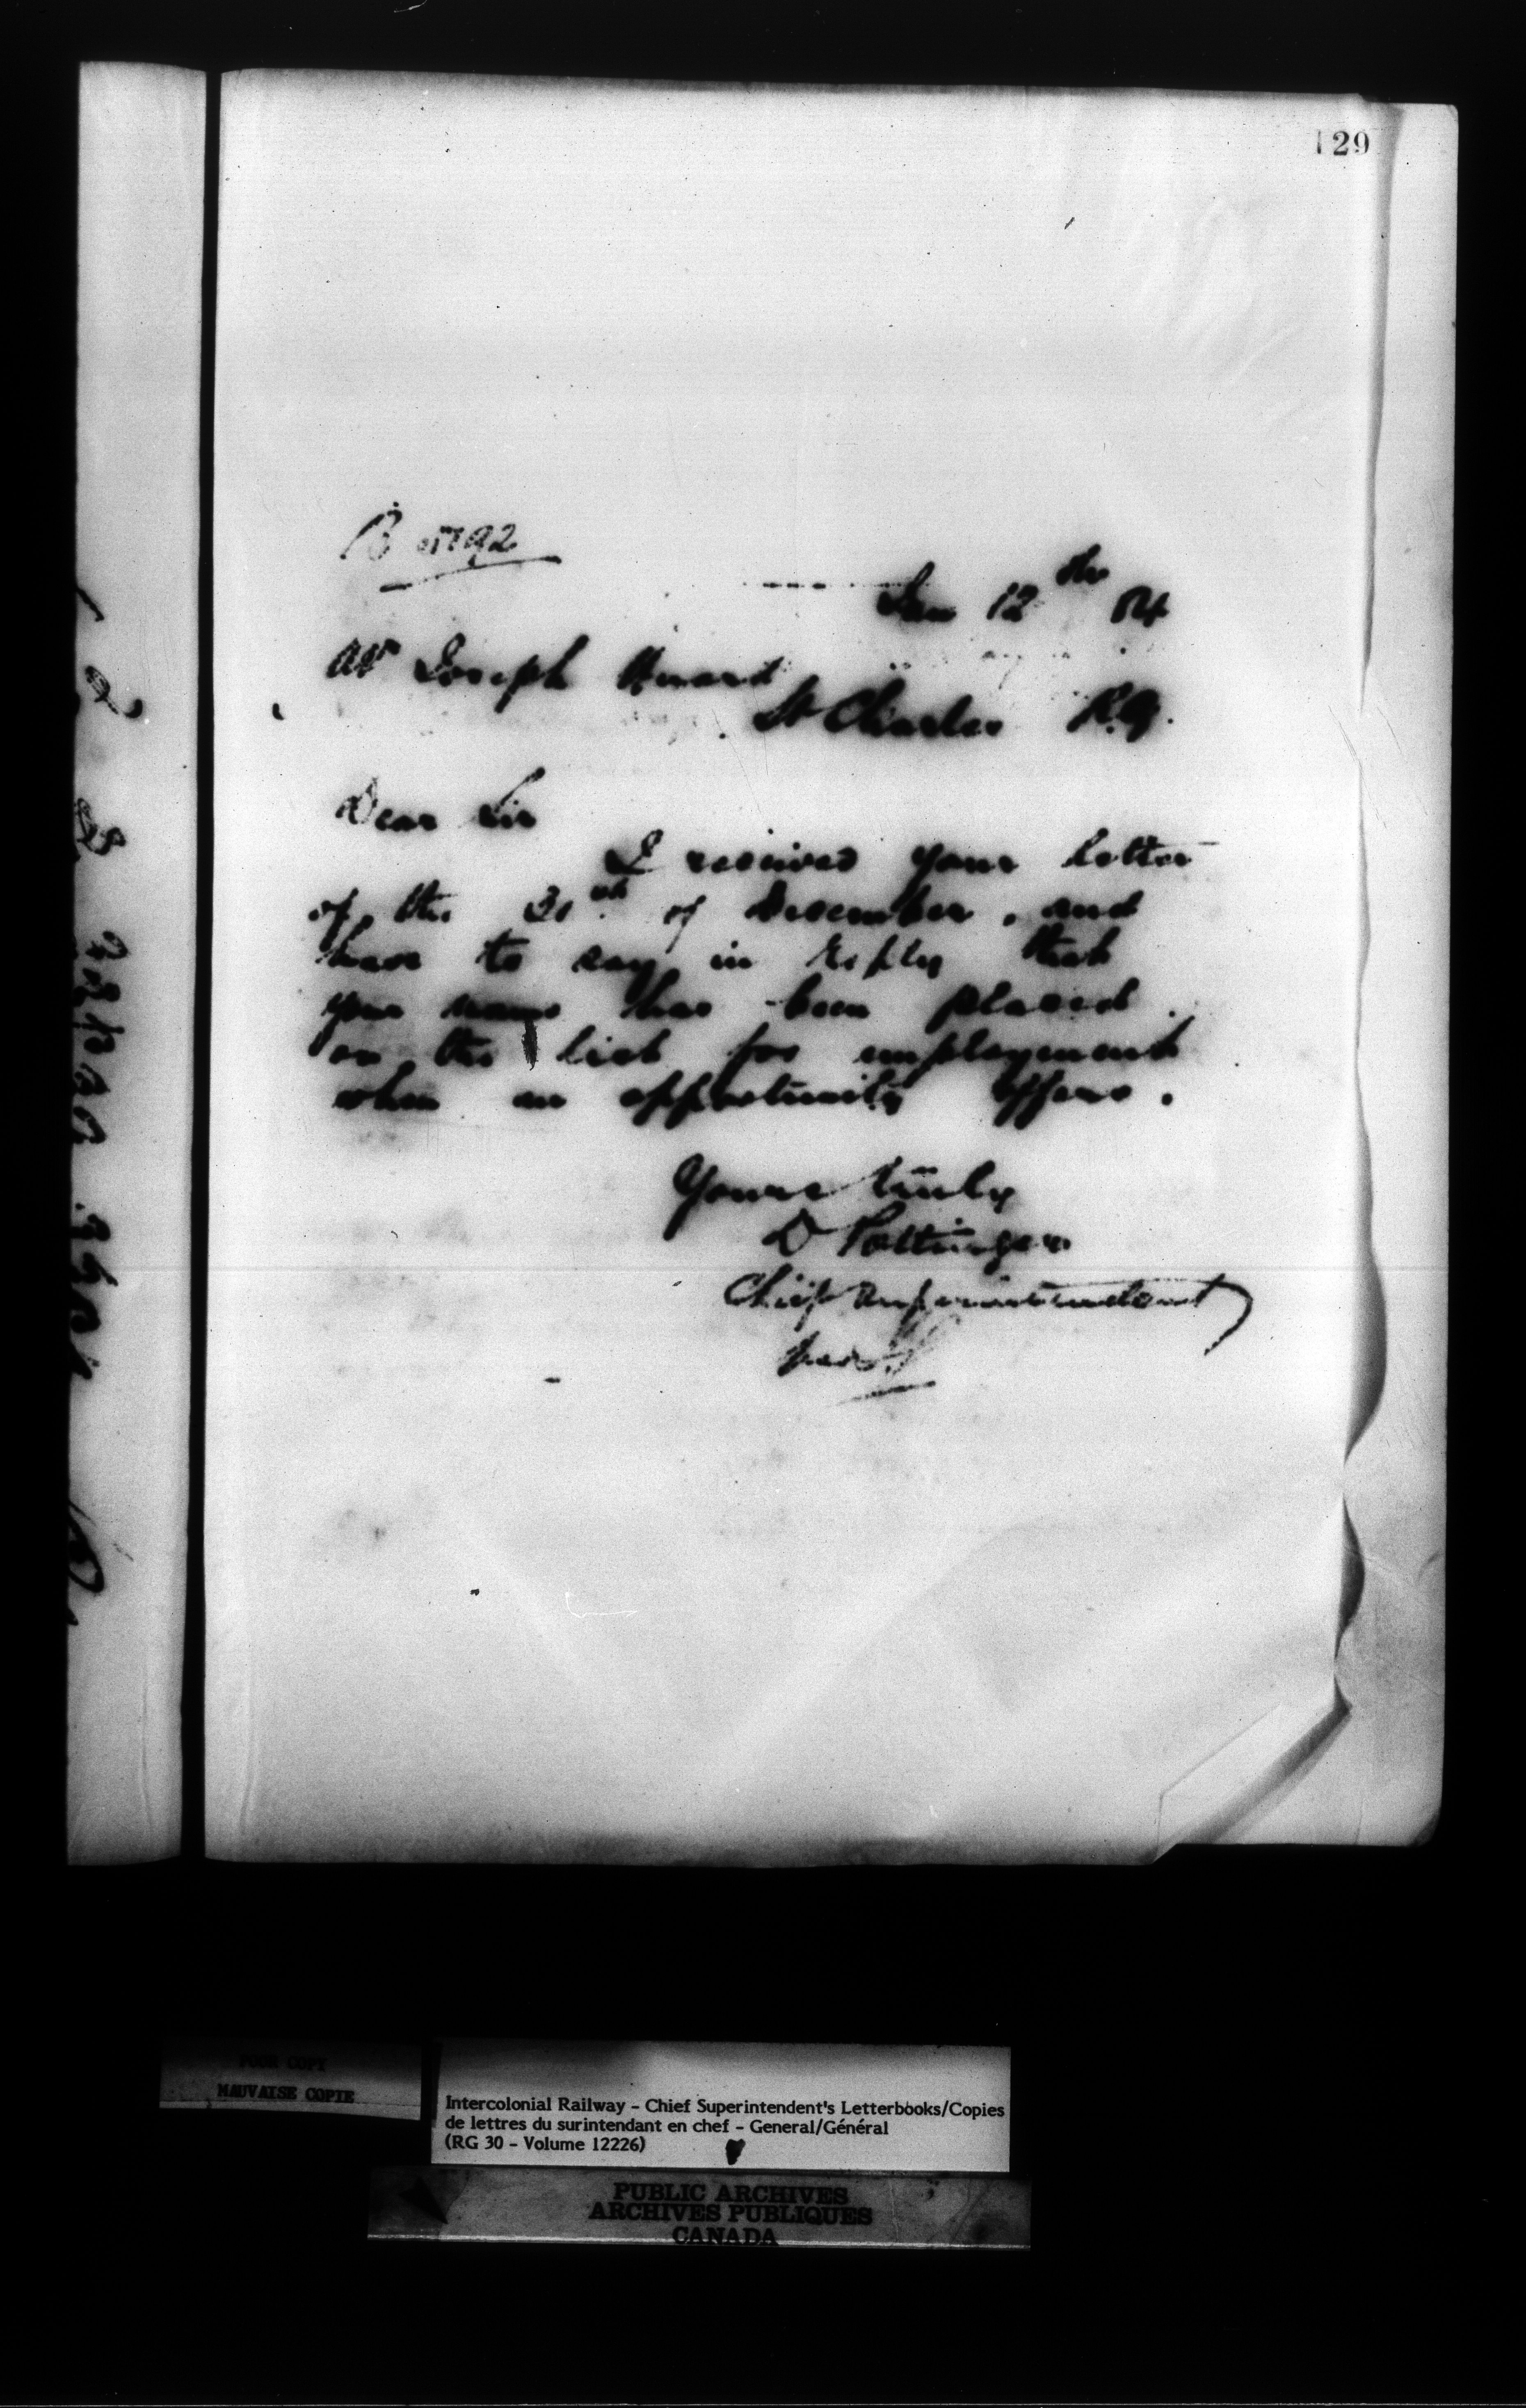 129
Jan 12th 84
Mr Joseph Huard
St Charles P.Q.
Dear Sir
I received your letter
of the 31st of December, and
have to say in reply that
your name has been placed
on the list for employment
when an opportunity offers.
Yours truly
D Pottinger
Chief Superintendent
per
POOR COPY
MAUVAISE COPIE
Intercolonial Railway – Chief Superintendent's Letterbooks/Copies
de lettres du surintendant en chef – General/Général
(RG 30 – Volume 12226)
PUBLIC ARCHIVES
ARCHIVES PUBLIQUES
CANADA